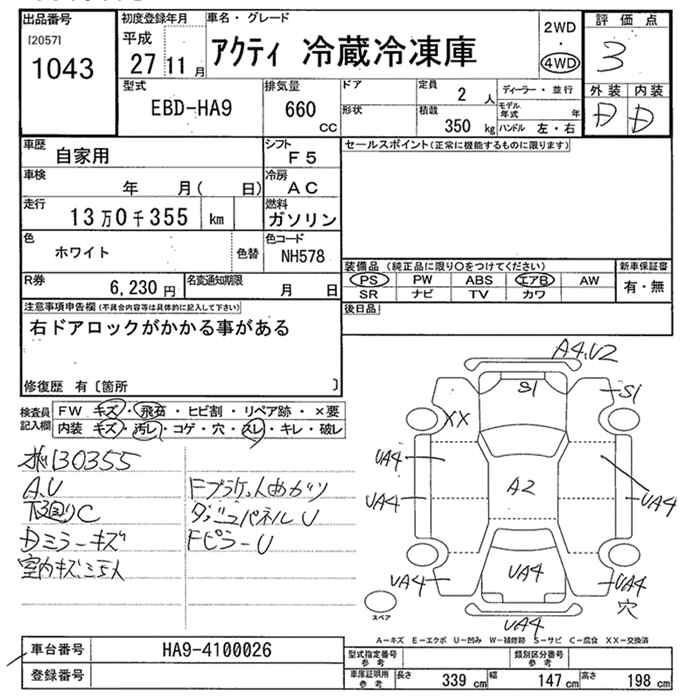 出品番号
[2057]
1043
初度登録年月
平成
27 11 月
車名・グレード
アクティ 冷蔵冷凍庫
2WD
・
4WD
評価点
3
外装 内装
D D
型式
EBD-HA9
排気量
660 CC
ドア
形状
定員
2 人
積載
350 kg
ディーラー・並行
モデル年式 年
ハンドル 左・右
車歴
自家用
シフト
F5
車検
年 月( 日)
冷房
AC
走行
13万0千355 km
燃料
ガソリン
色
ホワイト
色替
色コード
NH578
R券
6,230 円
名変通知期限
月 日
セールスポイント(正常に機能するものに限ります)
装備品 (純正品に限り○をつけてください)
PS PW ABS エアB AW
SR ナビ TV カワ
新車保証書
有・無
後日品
注意事項申告欄(不具合内容等は具体的に記入して下さい)
右ドアロックがかかる事がある
修復歴 有〔箇所 〕
検査員記入欄
FW キズ・飛石・ヒビ割・リペア跡・×要
内装 キズ・汚レ・コゲ・穴・スレ・キレ・破レ
130355
A.U
下廻りC
Dミラーキズ
室内キズ
ダッシュパネルU
FピラーU
A4.U2
S1
S1
XX
UA4
UA4
A2
UA4
UA4
UA4
UA4
穴
UA4
スペア
A−キズ E−エクボ U−凹み W−補修跡 S−サビ C−腐食 XX−交換済
車台番号
HA9-4100026
登録番号
型式指定番号
参考
類別区分番号
参考
車庫証明用
参考
長さ 339 cm 幅 147 cm 高さ 198 cm